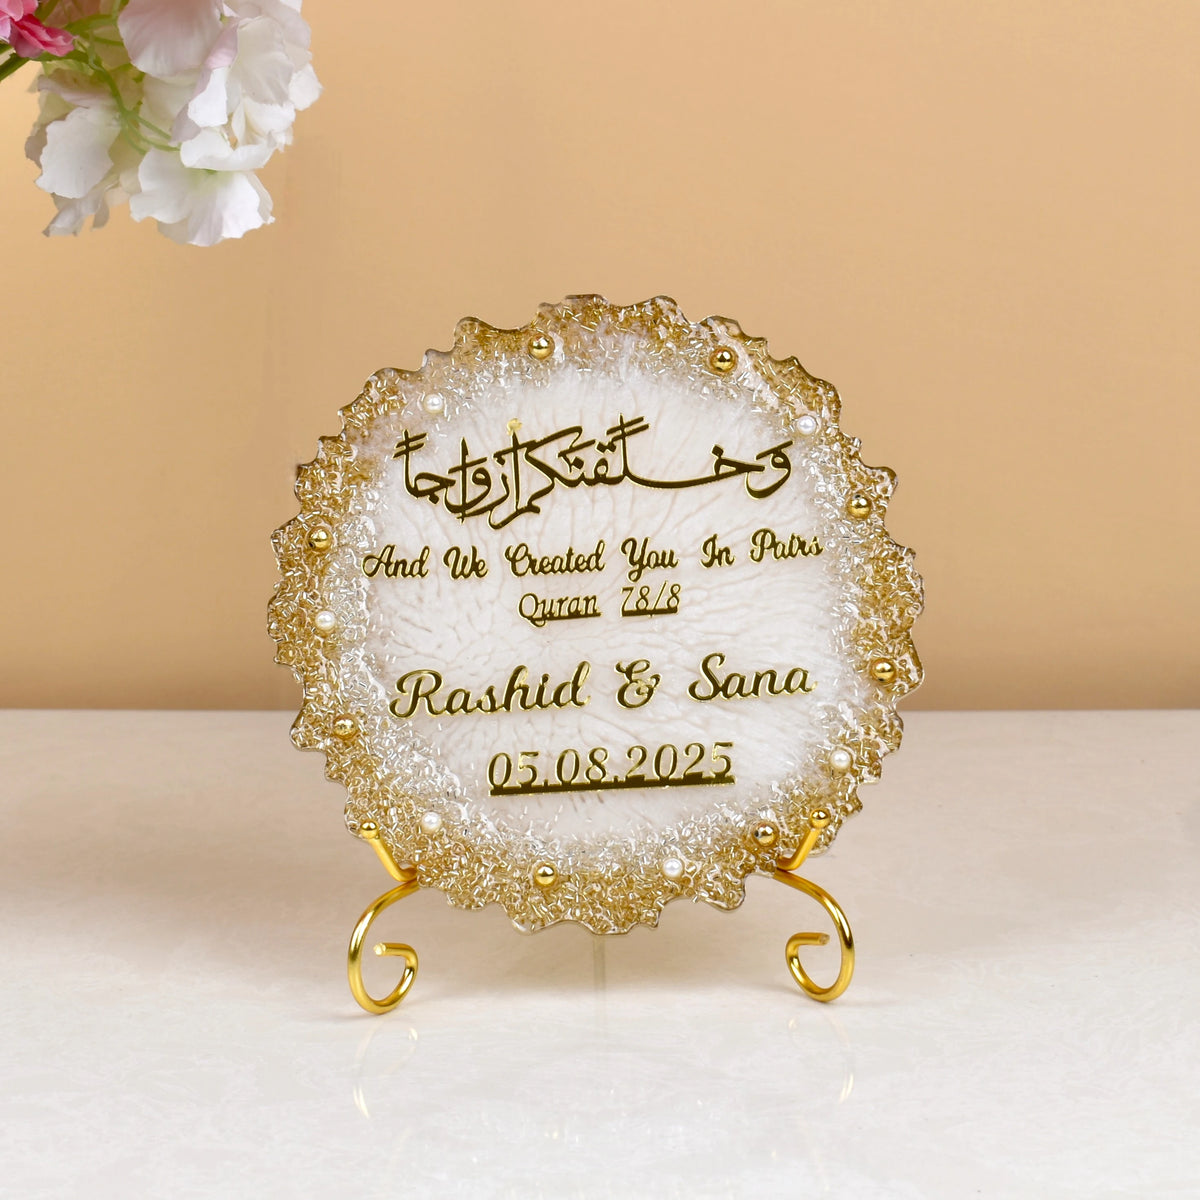 وَخَلَقْنَكُمْ أَزْوَاجاً
And We Created You In Pairs
Quran 78/8
Rashid & Sana
05.08.2025